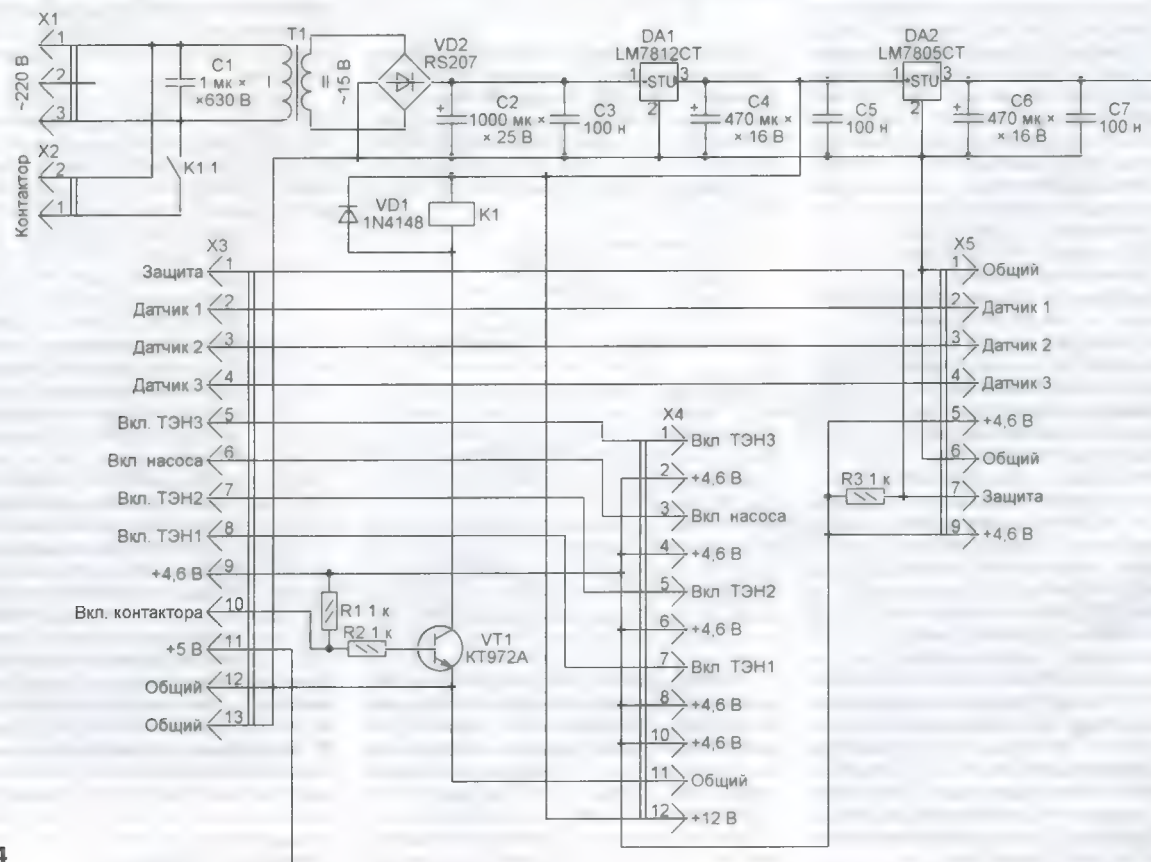 X1
1
~220 В
2
3
C1
1 мк ×
×630 В
T1
I
II
~15 В
VD2
RS207
C2
1000 мк ×
× 25 В
C3
100 н
DA1
LM7812CT
1
STU
3
2
C4
470 мк ×
× 16 В
C5
100 н
DA2
LM7805CT
1
STU
3
2
C6
470 мк ×
× 16 В
C7
100 н
X2
2
1
Контактор
K1 1
VD1
1N4148
K1
X3
Защита 1
Датчик 1 2
Датчик 2 3
Датчик 3 4
Вкл. ТЭН3 5
Вкл насоса 6
Вкл. ТЭН2 7
Вкл. ТЭН1 8
+4,6 В 9
Вкл. контактора 10
+5 В 11
Общий 12
Общий 13
R1 1 к
R2 1 к
VT1
КТ972А
X4
1 Вкл ТЭН3
2 +4,6 В
3 Вкл насоса
4 +4,6 В
5 Вкл ТЭН2
6 +4,6 В
7 Вкл ТЭН1
8 +4,6 В
10 +4,6 В
11 Общий
12 +12 В
X5
1 Общий
2 Датчик 1
3 Датчик 2
4 Датчик 3
5 +4,6 В
6 Общий
7 Защита
9 +4,6 В
R3 1 к
4